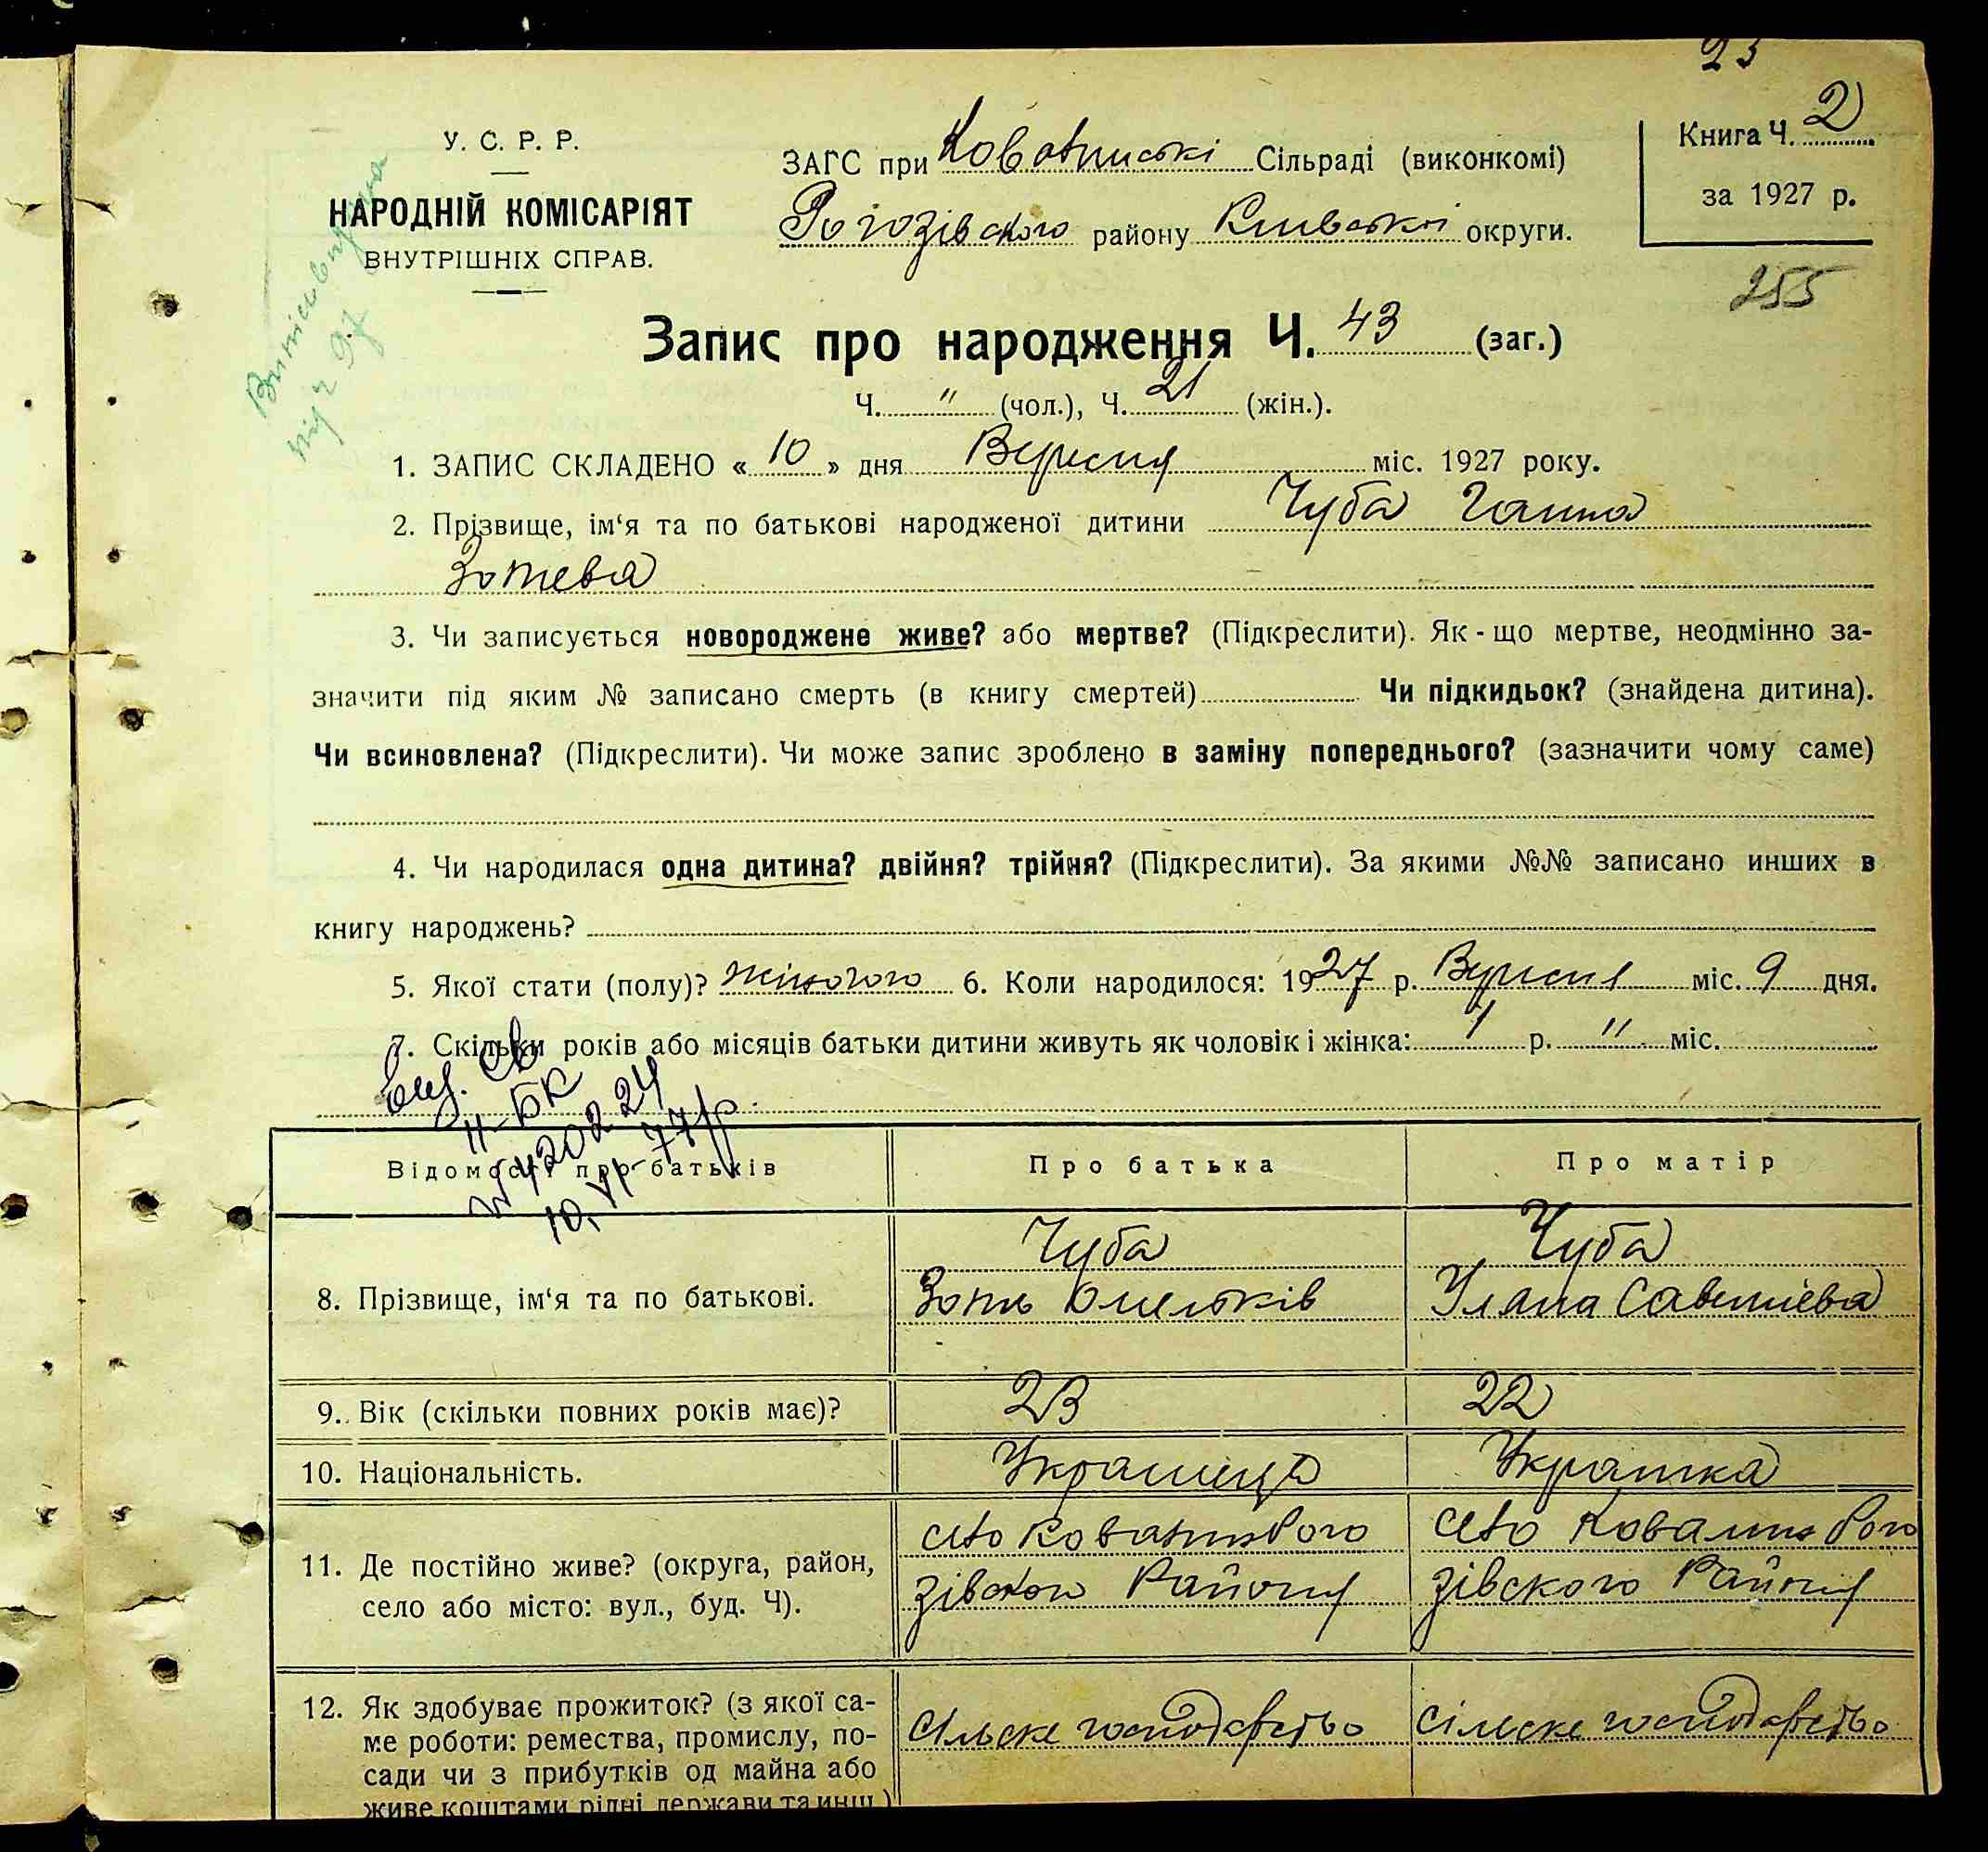 23
У. С. Р. Р.
НАРОДНІЙ КОМІСАРІЯТ
ВНУТРІШНІХ СПРАВ.
ЗАГС при Ковалинські Сільраді (виконкомі)
Рогозівского району Київської округи.
Книга Ч. 2
за 1927 р.
255
Запис про народження Ч. 43 (заг.)
Ч. " (чол.), Ч. 21 (жін.).
1. ЗАПИС СКЛАДЕНО « 10 » дня Вересня міс. 1927 року.
2. Прізвище, ім‘я та по батькові народженої дитини Чуба Ганна
Зотева
3. Чи записується новороджене живе? або мертве? (Підкреслити). Як-що мертве, неодмінно за-
значити під яким № записано смерть (в книгу смертей) Чи підкидьок? (знайдена дитина).
Чи всиновлена? (Підкреслити). Чи може запис зроблено в заміну попереднього? (зазначити чому саме)
4. Чи народилася одна дитина? двійня? трійня? (Підкреслити). За якими №№ записано инших в
книгу народжень?
5. Якої стати (полу)? жіночого 6. Коли народилося: 1927 р. Вересня міс. 9 дня.
7. Скільки років або місяців батьки дитини живуть як чоловік і жінка: 1 р. " міс.
II-БК
10. VI-77р
Відомості про батьків Про батька Про матір
8. Прізвище, ім‘я та по батькові.
Чуба
Зоть Омельків
Чуба
Уляна Савеліева
9. Вік (скільки повних років має)? 23 22
10. Національність. Українець Українка
11. Де постійно живе? (округа, район,
село або місто: вул., буд. Ч).
село Ковалин Рого
зівского Району
село Ковалин Рого
зівского Району
12. Як здобуває прожиток? (з якої са-
ме роботи: ремества, промислу, по-
сади чи з прибутків од майна або
живе коштами рідні держави та инш.)
Сільске господарство
Сільске господарство